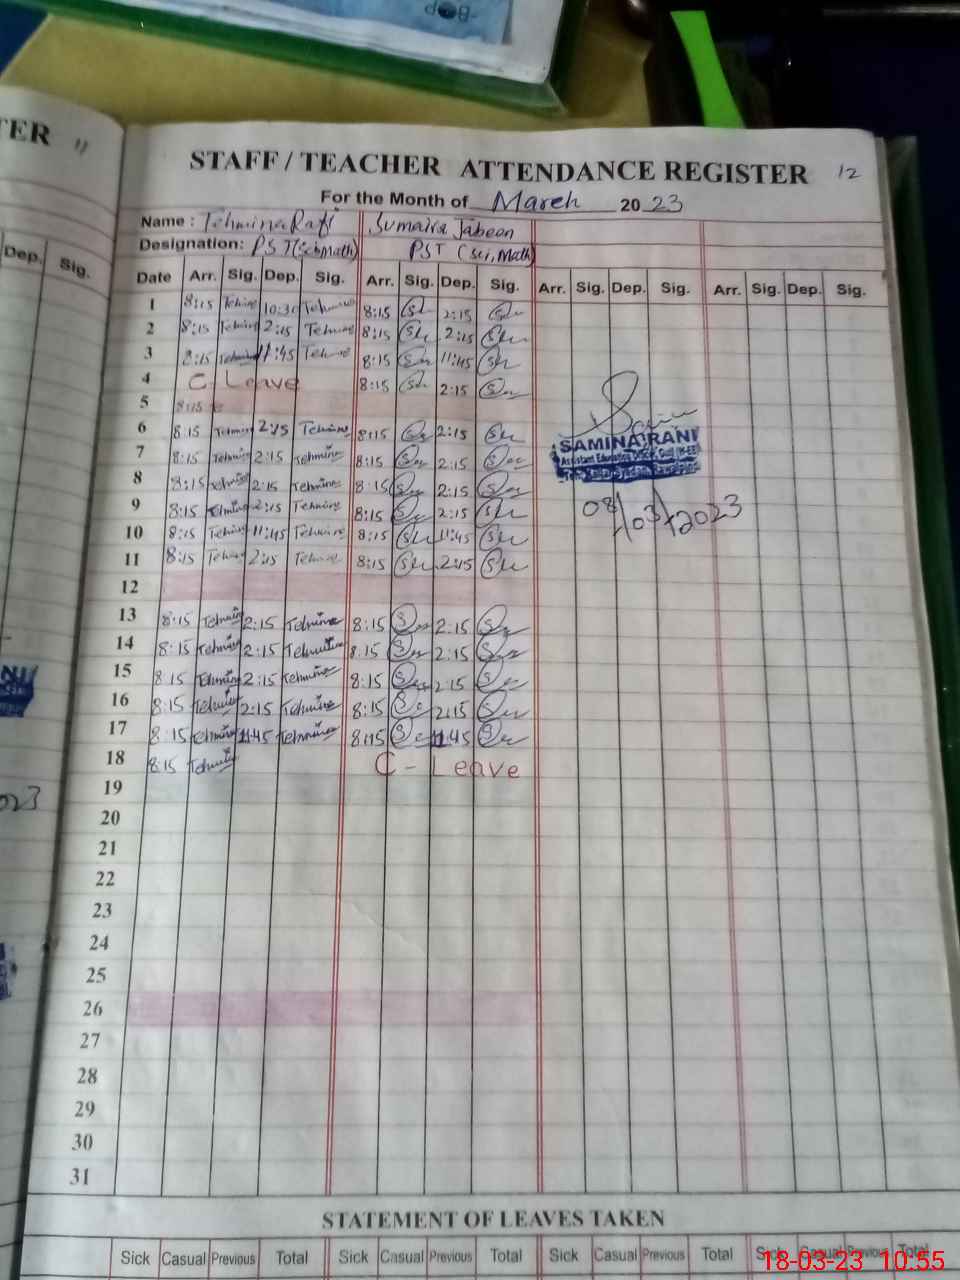 TER 11
STAFF / TEACHER ATTENDANCE REGISTER 12
For the Month of March 2023
Name : Tehmina Rafi Sumaira Jabeen
Designation: PST (Sci, Math) PST (Sci, Math)
Dep. Sig.
Date Arr. Sig. Dep. Sig. Arr. Sig. Dep. Sig. Arr. Sig. Dep. Sig. Arr. Sig. Dep. Sig.
1 8:15 Tehmina 10:30 Tehmina 8:15 2:15
2 8:15 Tehmina 2:15 Tehmina 8:15 2:15
3 8:15 Tehmina 11:45 Tehmina 8:15 11:45
4 C-Leave 8:15 2:15
5 8:15
6 8:15 Tehmina 2:15 Tehmina 8:15 2:15
SAMINA RANI
7 8:15 Tehmina 2:15 Tehmina 8:15 2:15
8 8:15 Tehmina 2:15 Tehmina 8:15 2:15
9 8:15 Tehmina 2:15 Tehmina 8:15 2:15
08/03/2023
10 8:15 Tehmina 11:45 Tehmina 8:15 11:45
11 8:15 Tehmina 2:15 Tehmina 8:15 2:15
12
13 8:15 Tehmina 2:15 Tehmina 8:15 2:15
14 8:15 Tehmina 2:15 Tehmina 8:15 2:15
15 8:15 Tehmina 2:15 Tehmina 8:15 2:15
16 8:15 Tehmina 2:15 Tehmina 8:15 2:15
17 8:15 Tehmina 11:45 Tehmina 8:15 11:45
18 8:15 Tehmina C-Leave
19
20
21
22
23
24
25
26
27
28
29
30
31
STATEMENT OF LEAVES TAKEN
Sick Casual Previous Total Sick Casual Previous Total Sick Casual Previous Total Sick Casual Previous Total
18-03-23 10:55